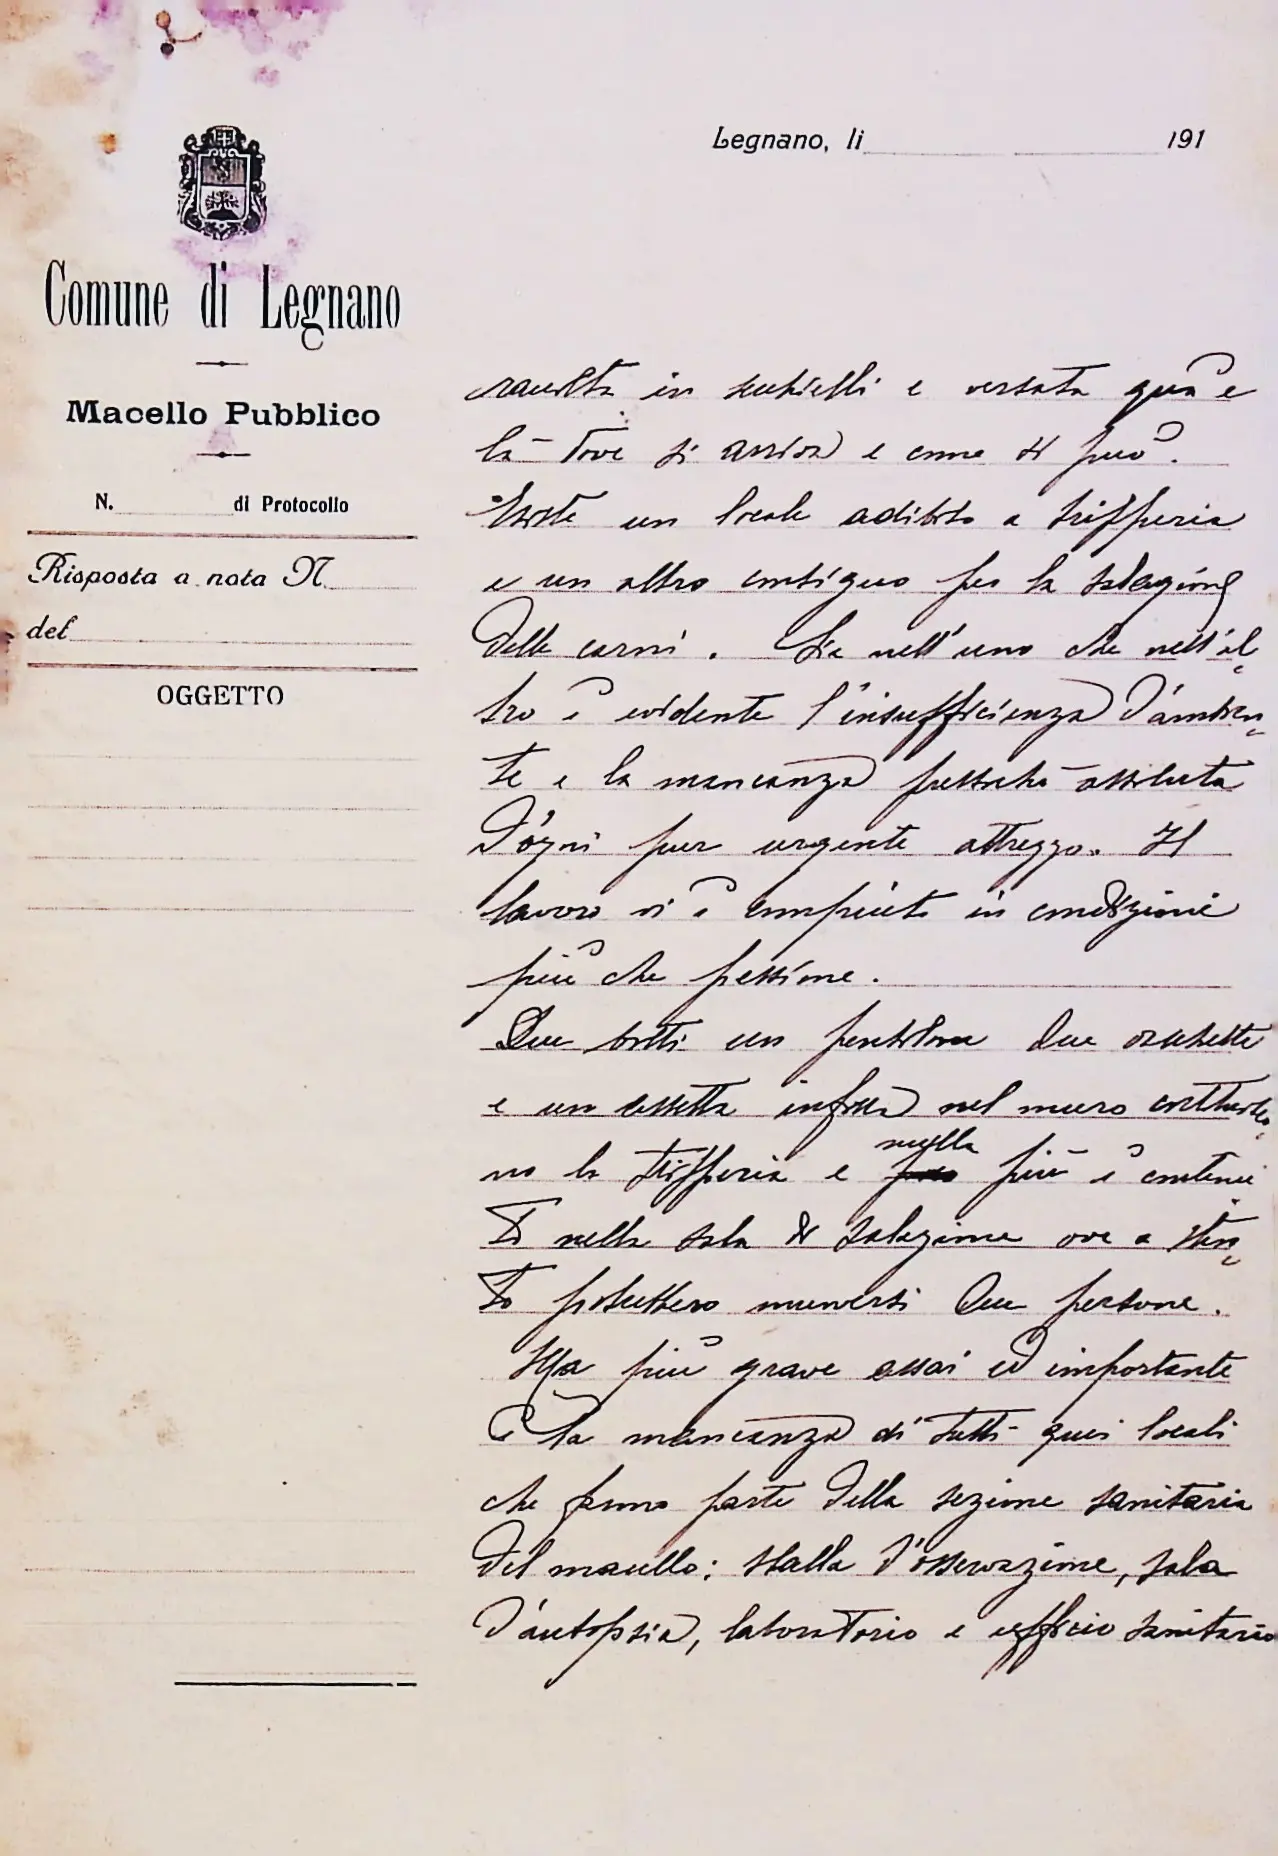 Legnano, li 191
Comune di Legnano
Macello Pubblico
N. di Protocollo
Risposta a nota N.
del
OGGETTO
raccolta in secchielli e versata qua e
là dove si arriva e come si può.
Esiste un locale adibito a tripperia
e un altro contiguo per la salagione
delle carni. Sia nell'uno che nell'al-
tro è evidente l'insufficienza d'ambien-
te e la mancanza pressochè assoluta
d'ogni pur urgente attrezzo. Il
lavoro vi è compiuto in condizioni
più che pessime.
Due botti un pentolone due
e un infissa nel muro costituisco-
no la tripperia e nulla più è contenu
to nella sala di salagione ove a sten-
to potrebbero muoversi due persone.
Ma più grave assai ed importante
è la mancanza di tutti quei locali
che fanno parte della sezione sanitaria
del macello: stalla d'osservazione, sala
d'autopsia, laboratorio e ufficio sanitario